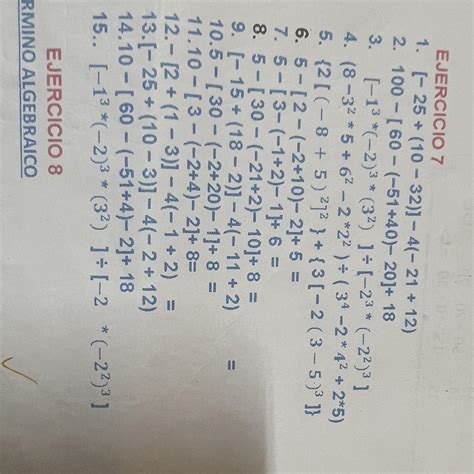 EJERCICIO 7
1. [- 25 + (10 – 32)] – 4(– 21 + 12)
2. 100 – [ 60 – (-51+40)– 20]+ 18
3. [−1³ *(−2)³ * (3²) ] ÷[−2³ * (−2²)³ ]
4. (8 −3² * 5 + 6² − 2 *2² ) ÷ ( 3⁴ −2 * 4² + 2*5)
5. {2 [ ( − 8 + 5 )²]² } + { 3 [ − 2 ( 3 − 5 )³ ]}
6. 5 – [ 2 – (-2+10)– 2]+ 5 =
7. 5 – [ 3– (-1+2)– 1]+ 6 =
8. 5 – [ 30 – (-21+2)– 10]+ 8 =
9. [- 15 + (18 – 2)] – 4(– 11 + 2) =
10. 5 – [ 30 – (-2+20)– 1]+ 8 =
11. 10 – [ 3 – (-2+4)– 2]+ 8=
12. – [2 + (1 – 3)] – 4(– 1 + 2) =
13. [- 25 + (10 – 3)] – 4(– 2 + 12)
14. 10 – [ 60 (-51+4)– 2]+ 18
15.. [−1³ *(−2)³ * (3²) ] ÷ [−2 * (−2²)³ ]
EJERCICIO 8
RMINO ALGEBRAICO